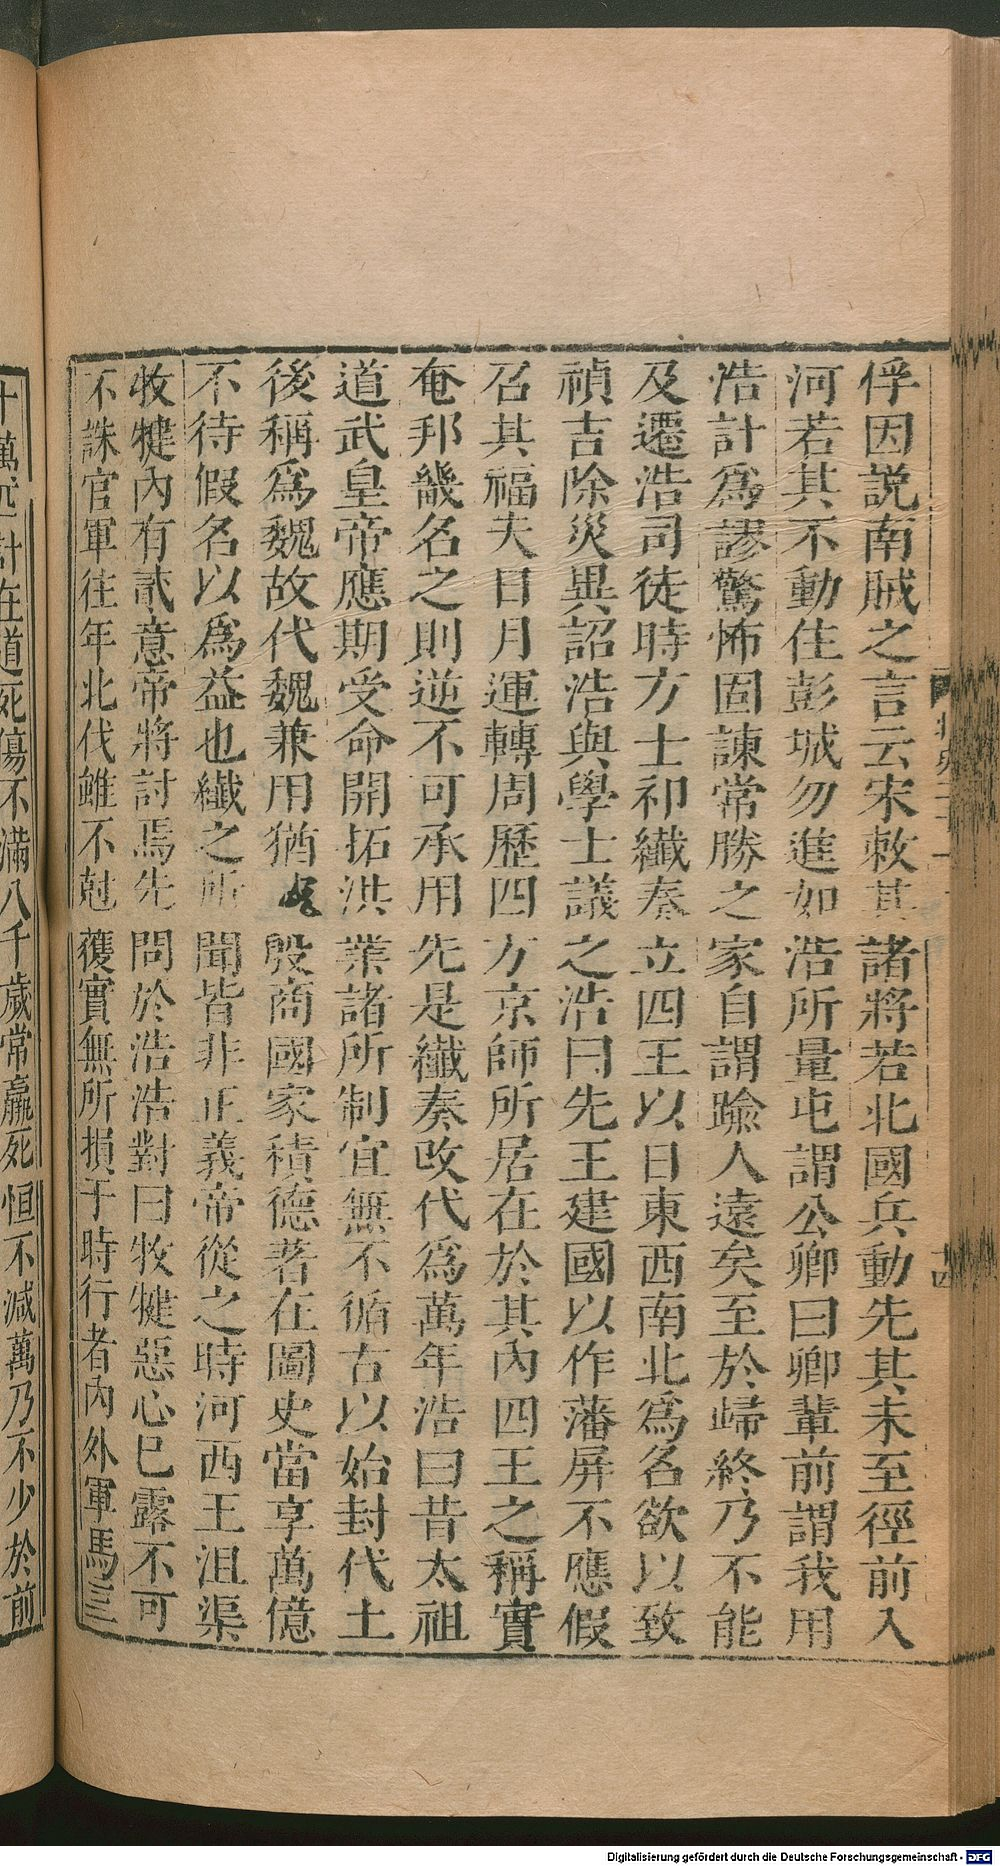 俘因説南賊之言云宋敕其諸將若北國兵動先其未至徑前入
河若其不動住彭城勿進如浩所量屯謂公卿曰卿輩前謂我用
浩計爲謬驚怖固諫常勝之家自謂踰人遠矣至於歸終乃不能
及遷浩司徒時方士祁纖奏立四王以日東西南北爲名欲以致
禎吉除災異詔浩與學士議之浩曰先王建國以作藩屏不應假
召其福夫日月運轉周歷四方京師所居在於其內四王之稱實
奄邦畿名之則逆不可承用先是纖奏改代爲萬年浩曰昔太祖
道武皇帝應期受命開拓洪業諸所制宜無不循古以始封代土
後稱爲魏故代魏兼用猶殷商國家積德著在圖史當享萬億
不待假名以爲益也纖之所聞皆非正義帝從之時河西王沮渠
牧犍內有貳意帝將討焉先問於浩浩對曰牧犍惡心已露不可
不誅官軍往年北伐雖不尅獲實無所損于時行者內外軍馬三
十萬匹計在道死傷不滿八千歲常羸死恒不減萬乃不少於前
北史二十一
十四
Digitalisierung gefördert durch die Deutsche Forschungsgemeinschaft - DFG